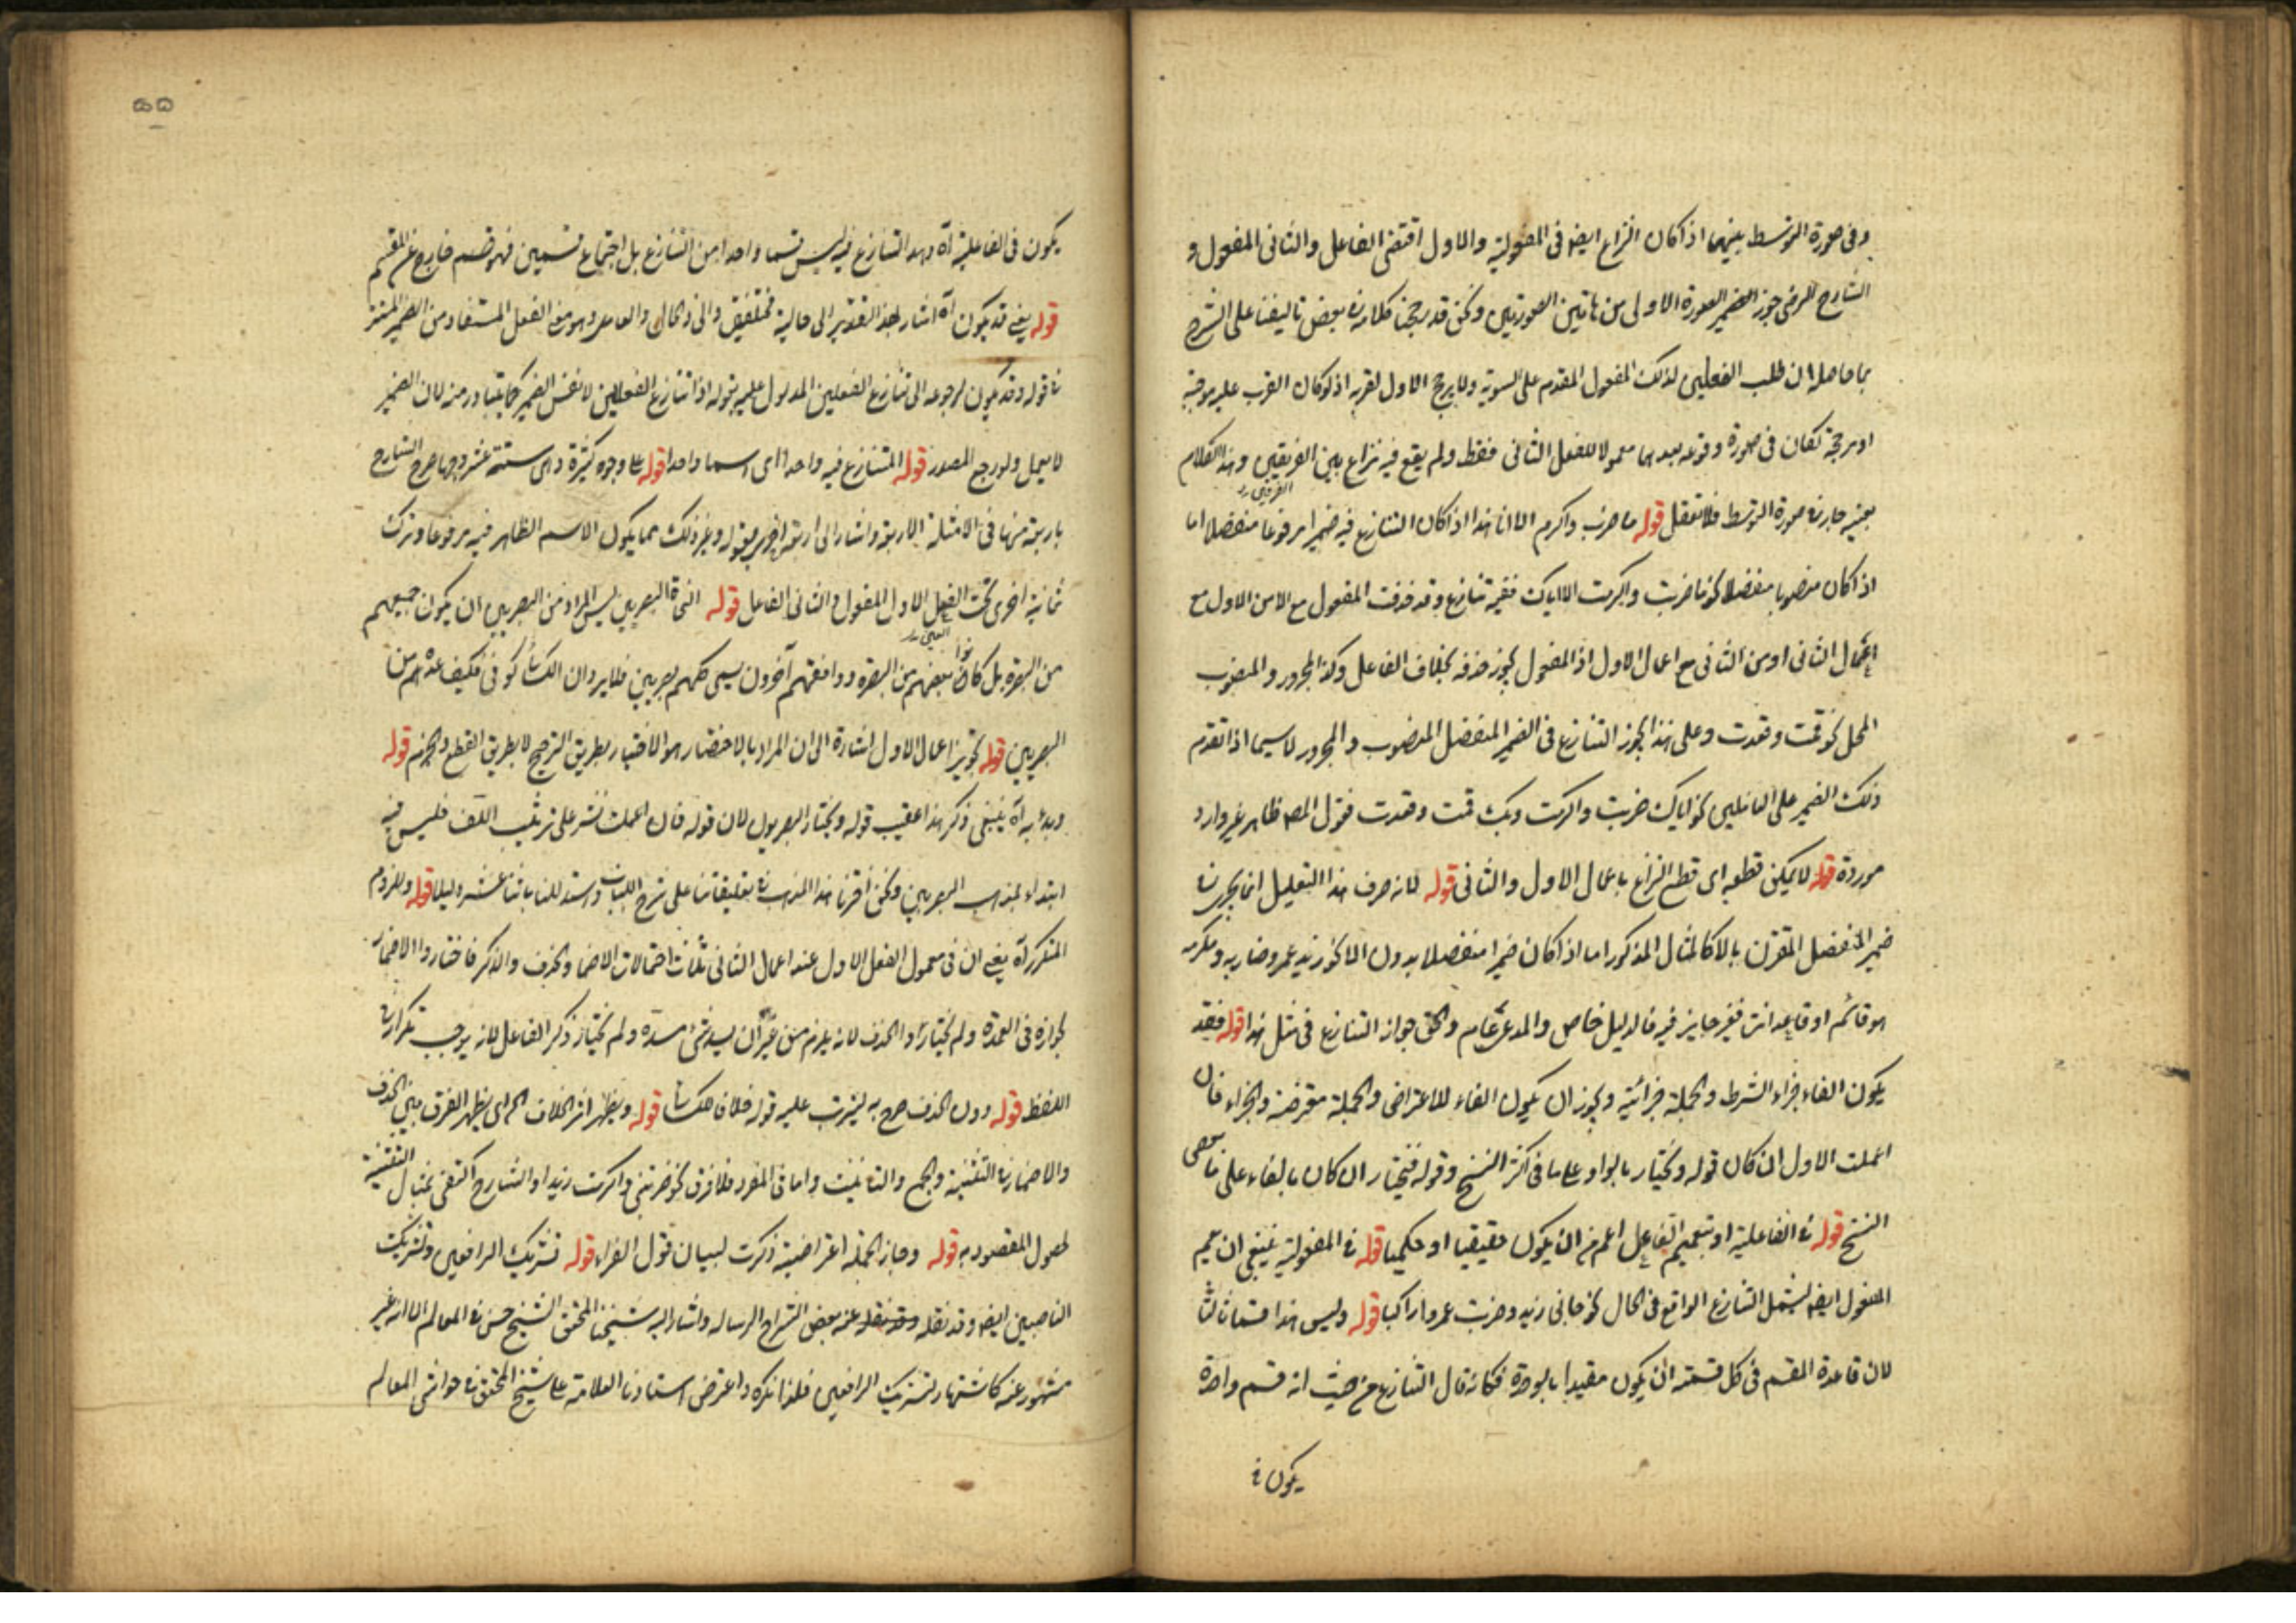 وفى صورة التوسط بينهما اذا كان النزاع ايضا فى المفعولية والاول اقتضى الفاعل والثانى المفعول و
الشارح الرضى جوز الصورة الاولى من هاتين الصورتين ونحن قد رجحنا كلامه فى بعض تاليفنا على الشرح
بما حاصله ان طلب الفعلين لذلك المفعول المقدم على السوية ولا يرجح الاول لقربه اذ لو كان القرب عليه موجبة
او مرجحة لكان فى صورة وقوعه بعدهما معمولا للفعل الثانى فقط ولم يقع فيه نزاع بين الفريقين وهذا الكلام
بعينه جار فى صورة التوسط فلا تغفل قوله ما ضرب واكرم الا انا هذا اذا كان التنازع فيه ضميرا مرفوعا منفصلا اما
اذا كان منصوبا منفصلا نحو ما ضربت واكرمت الا اياك ففيه تنازع وقد حذفت المفعول مع الا من الاول مع
اعمال الثانى او من الثانى مع اعمال الاول اذ المفعول يجوز حذفه بخلاف الفاعل وكذا المجرور والمنصوب
المحل نحو قمت وقعدت وعلى هذا يجوز التنازع فى الضمير المنفصل المنصوب والمجرور لا سيما اذا تقدم
ذلك الضمير على العاملين نحو اياك ضربت واكرمت وبك قمت وقعدت فقول المص ظاهر غير وارد
موردة قوله لا يمكن قطعه اى قطع النزاع باعمال الاول والثانى قوله لانه حرف هذا التعليل انما يجرى فى
ضمير المنفصل المقرن بالا كالمثال المذكور اما اذا كان ضميرا منفصلا بدون الا نحو زيد عمرو ضاربه ومكرمه
هو قائم او قاعد انت فغير جايز فيه فالدليل خاص والمدعى عام والحق جواز التنازع فى مثل هذا قوله فقد
يكون الفاء جزاء الشرط والجملة جزائية ويجوز ان يكون الفاء للاعتراض والجملة معترضة والجزاء فان
اعملت الاول ان كان قوله ويختار بالواو على ما فى اكثر النسخ وقوله فيختار ان كان بالفاء على ما فى بعض
النسخ قوله فى الفاعلية او تعميم الفاعل اعم من ان يكون حقيقيا او حكميا قوله فى المفعولية ينبغى ان يعم
المفعول ايضا ليشمل التنازع الواقع فى الحال نحو جانى زيد وضربت عمروا راكبا قوله وليس هذا قسما ثالثا
لان قاعدة المقسم فى كل قسمة ان يكون مقيدا بالوحدة فكانه قال التنازع من حيث انه قسم واحدة
يكون فى
٥٥
يكون فى الفاعلية آه وهذا التنازع فيه ليس قسما واحدا من التنازع بل اجتماع قسمين فهو قسم خارج عن المقسم
قوله يعنى قد يكون آه اشار بهذا التقدير الى حالية مختلفين والى ذى الحال والعامل وهو معنى الفعل المستفاد من الضمير المستتر
فى قوله وقد يكون لرجوعه الى تنازع الفعلين المدلول عليه بقوله اذا تنازع الفعلان لا نفس الضمير كما يتبادر منه لان الضمير
لا يعمل ولو رجع المصدر قوله المتنازع فيه واحدا اى اسما واحدا قوله على وجوه كثيرة وهى ستة عشر وجها صرح الشارح
باربعة منها فى الامثلة الاربعة واشار الى اربعة اخرى بقوله وغير ذلك مما يكون الاسم الظاهر فيه مرفوعا وترك
ثمانية اخرى تحت الفعل الاول المفعول والثانى الفاعل قوله النحاة البصريين ليس المراد من البصريين ان يكون جميعهم
من البصرة بل كان بعضهم من البصرة ووافقهم آخرون يسمى كلهم بصريين فلا يرد ان الكسائى كوفى فكيف عده من
البصريين قوله تجويز اعمال الاول اشارة الى ان المراد بالاختصار هو الاختيار بطريق الترجيح لا بطريق القطع والجزم قوله
وبدأ به آه ينبغى ذكر هذا عقيب قوله ويختار البصريون لان قوله فان اعملت نشر على ترتيب اللف فليس فيه
ابتداء بمذهب البصريين ونحن اخترنا هذا المذهب فى تعليقاتنا على شرح اللباب واستدللنا باثنا عشر دليلا قوله وللزوم
التكرر آه يعنى ان فى معمول الفعل الاول عند اعمال الثانى ثلاث احتمالات الاضمار والحذف والذكر فاختاروا الاضمار
لجوازه فى العمدة ولم يختاروا الحذف لانه يلزم من غير ان يسد شئ مسده ولم يختار ذكر الفاعل لانه يوجب تكرار
اللفظ قوله دون الحذف صرح به ليترتب عليه قوله خلافا للكسائى قوله ويظهر اثر الخلاف اه اى يظهر الفرق بين الحذف
والاضمار فى التثنية والجمع والتانيث واما فى المفرد فلا فرق نحو ضربنى واكرمت زيدا والشارح اكتفى بمثال التثنية
لحصول المقصود به قوله وجاز الجملة اعتراضية ذكرت لبيان قول الفراء قوله تشريك الرافعين وتشريك
الناصبين ايضا وقد نقله عنه بعض الشراح الرسالة واشار اليه شيخنا المحقق الشيخ حسن فى المعالم الا انه غير
مشهور عنه كاشتهار تشريك الرافعين فلذا نكره واعترض استادنا العلامة على شيخ المحقق فى حواشى المعالم